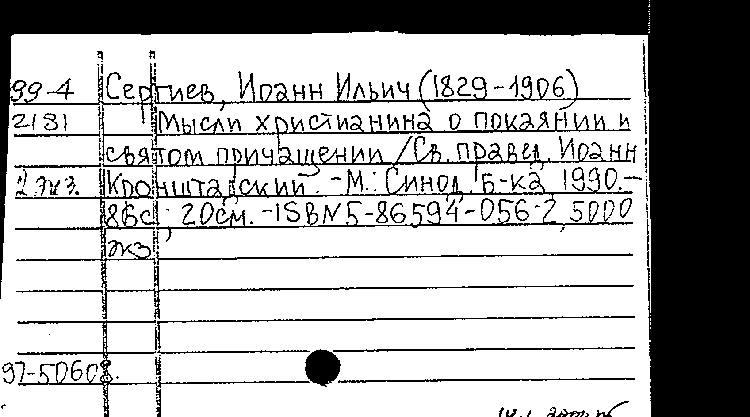 99-4 Сергиев, Иоанн Ильич (1829-1906)
2181 Мысли христианина о покаянии и
святом причащении / Св. правед. Иоанн
2 экз. Кронштадский. - М.: Синод. Б-ка, 1990. -
86с.; 20см. - ISBN 5-86594-056-2, 5000
экз
97-50608.